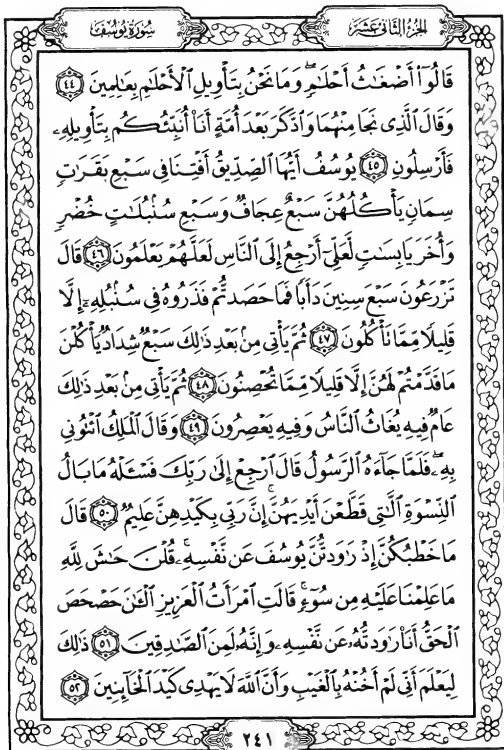 سُورَةُ يُوسُفَ
الجُزءُ الثَّانِي عَشَرَ
قَالُوٓا۟ أَضْغَٰثُ أَحْلَٰمٍ ۖ وَمَا نَحْنُ بِتَأْوِيلِ ٱلْأَحْلَٰمِ بِعَٰلِمِينَ ٤٤
وَقَالَ ٱلَّذِى نَجَا مِنْهُمَا وَٱدَّكَرَ بَعْدَ أُمَّةٍ أَنَا۠ أُنَبِّئُكُم بِتَأْوِيلِهِۦ
فَأَرْسِلُونِ ٤٥ يُوسُفُ أَيُّهَا ٱلصِّدِّيقُ أَفْتِنَا فِى سَبْعِ بَقَرَٰتٍ
سِمَانٍ يَأْكُلُهُنَّ سَبْعٌ عِجَافٌ وَسَبْعِ سُنۢبُلَٰتٍ خُضْرٍ
وَأُخَرَ يَابِسَٰتٍ لَّعَلِّىٓ أَرْجِعُ إِلَى ٱلنَّاسِ لَعَلَّهُمْ يَعْلَمُونَ ٤٦ قَالَ
تَزْرَعُونَ سَبْعَ سِنِينَ دَأَبًا فَمَا حَصَدتُّمْ فَذَرُوهُ فِى سُنۢبُلِهِۦٓ إِلَّا
قَلِيلًا مِّمَّا تَأْكُلُونَ ٤٧ ثُمَّ يَأْتِى مِنۢ بَعْدِ ذَٰلِكَ سَبْعٌ شِدَادٌ يَأْكُلْنَ
مَا قَدَّمْتُمْ لَهُنَّ إِلَّا قَلِيلًا مِّمَّا تُحْصِنُونَ ٤٨ ثُمَّ يَأْتِى مِنۢ بَعْدِ ذَٰلِكَ
عَامٌ فِيهِ يُغَاثُ ٱلنَّاسُ وَفِيهِ يَعْصِرُونَ ٤٩ وَقَالَ ٱلْمَلِكُ ٱئْتُونِى
بِهِۦ ۖ فَلَمَّا جَآءَهُ ٱلرَّسُولُ قَالَ ٱرْجِعْ إِلَىٰ رَبِّكَ فَسْـَٔلْهُ مَا بَالُ
ٱلنِّسْوَةِ ٱلَّٰتِى قَطَّعْنَ أَيْدِيَهُنَّ ۚ إِنَّ رَبِّى بِكَيْدِهِنَّ عَلِيمٌ ٥٠ قَالَ
مَا خَطْبُكُنَّ إِذْ رَٰوَدتُّنَّ يُوسُفَ عَن نَّفْسِهِۦ ۚ قُلْنَ حَٰشَ لِلَّهِ
مَا عَلِمْنَا عَلَيْهِ مِن سُوٓءٍ ۚ قَالَتِ ٱمْرَأَتُ ٱلْعَزِيزِ ٱلْـَٰٔنَ حَصْحَصَ
ٱلْحَقُّ أَنَا۠ رَٰوَدتُّهُۥ عَن نَّفْسِهِۦ وَإِنَّهُۥ لَمِنَ ٱلصَّٰدِقِينَ ٥١ ذَٰلِكَ
لِيَعْلَمَ أَنِّى لَمْ أَخُنْهُ بِٱلْغَيْبِ وَأَنَّ ٱللَّهَ لَا يَهْدِى كَيْدَ ٱلْخَآئِنِينَ ٥٢
٢٤١